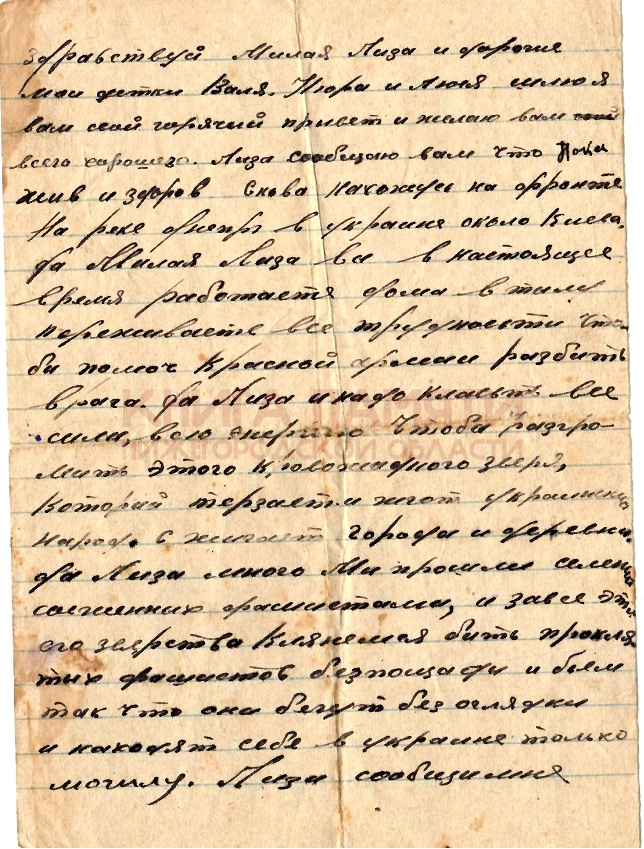 здравствуй Милая Лиза и дорогие
мои детки Валя, Нюра и Люся шлю я
вам свой горячий привет и желаю вам
всего хорошего. Лиза сообщаю вам что Пока
жив и здоров Снова нахожусь на фронте
На реке днепр в украине около Киева,
да Милая Лиза ви в настоящее
время работаете дома в тилу
переживаете все трудности что-
би помоч Красной армии разбить
врага. да Лиза и надо класть все
сили, всю енергию Чтоби разгро-
мить этого кровожадного зверя,
Который терзает и жгот украинский
народ, сжигает города и деревни.
да Лиза много Ми прошли селений
сожженних фашистами, и за все это
его зверства Клянемся бить прокля
тих фашистов безпощади и бьем
так что они бегут без оглядки
и находят себе в украине только
могилу. Лиза сообщи мне
КНИГА ПАМЯТИ
НИЖЕГОРОДСКОЙ ОБЛАСТИ